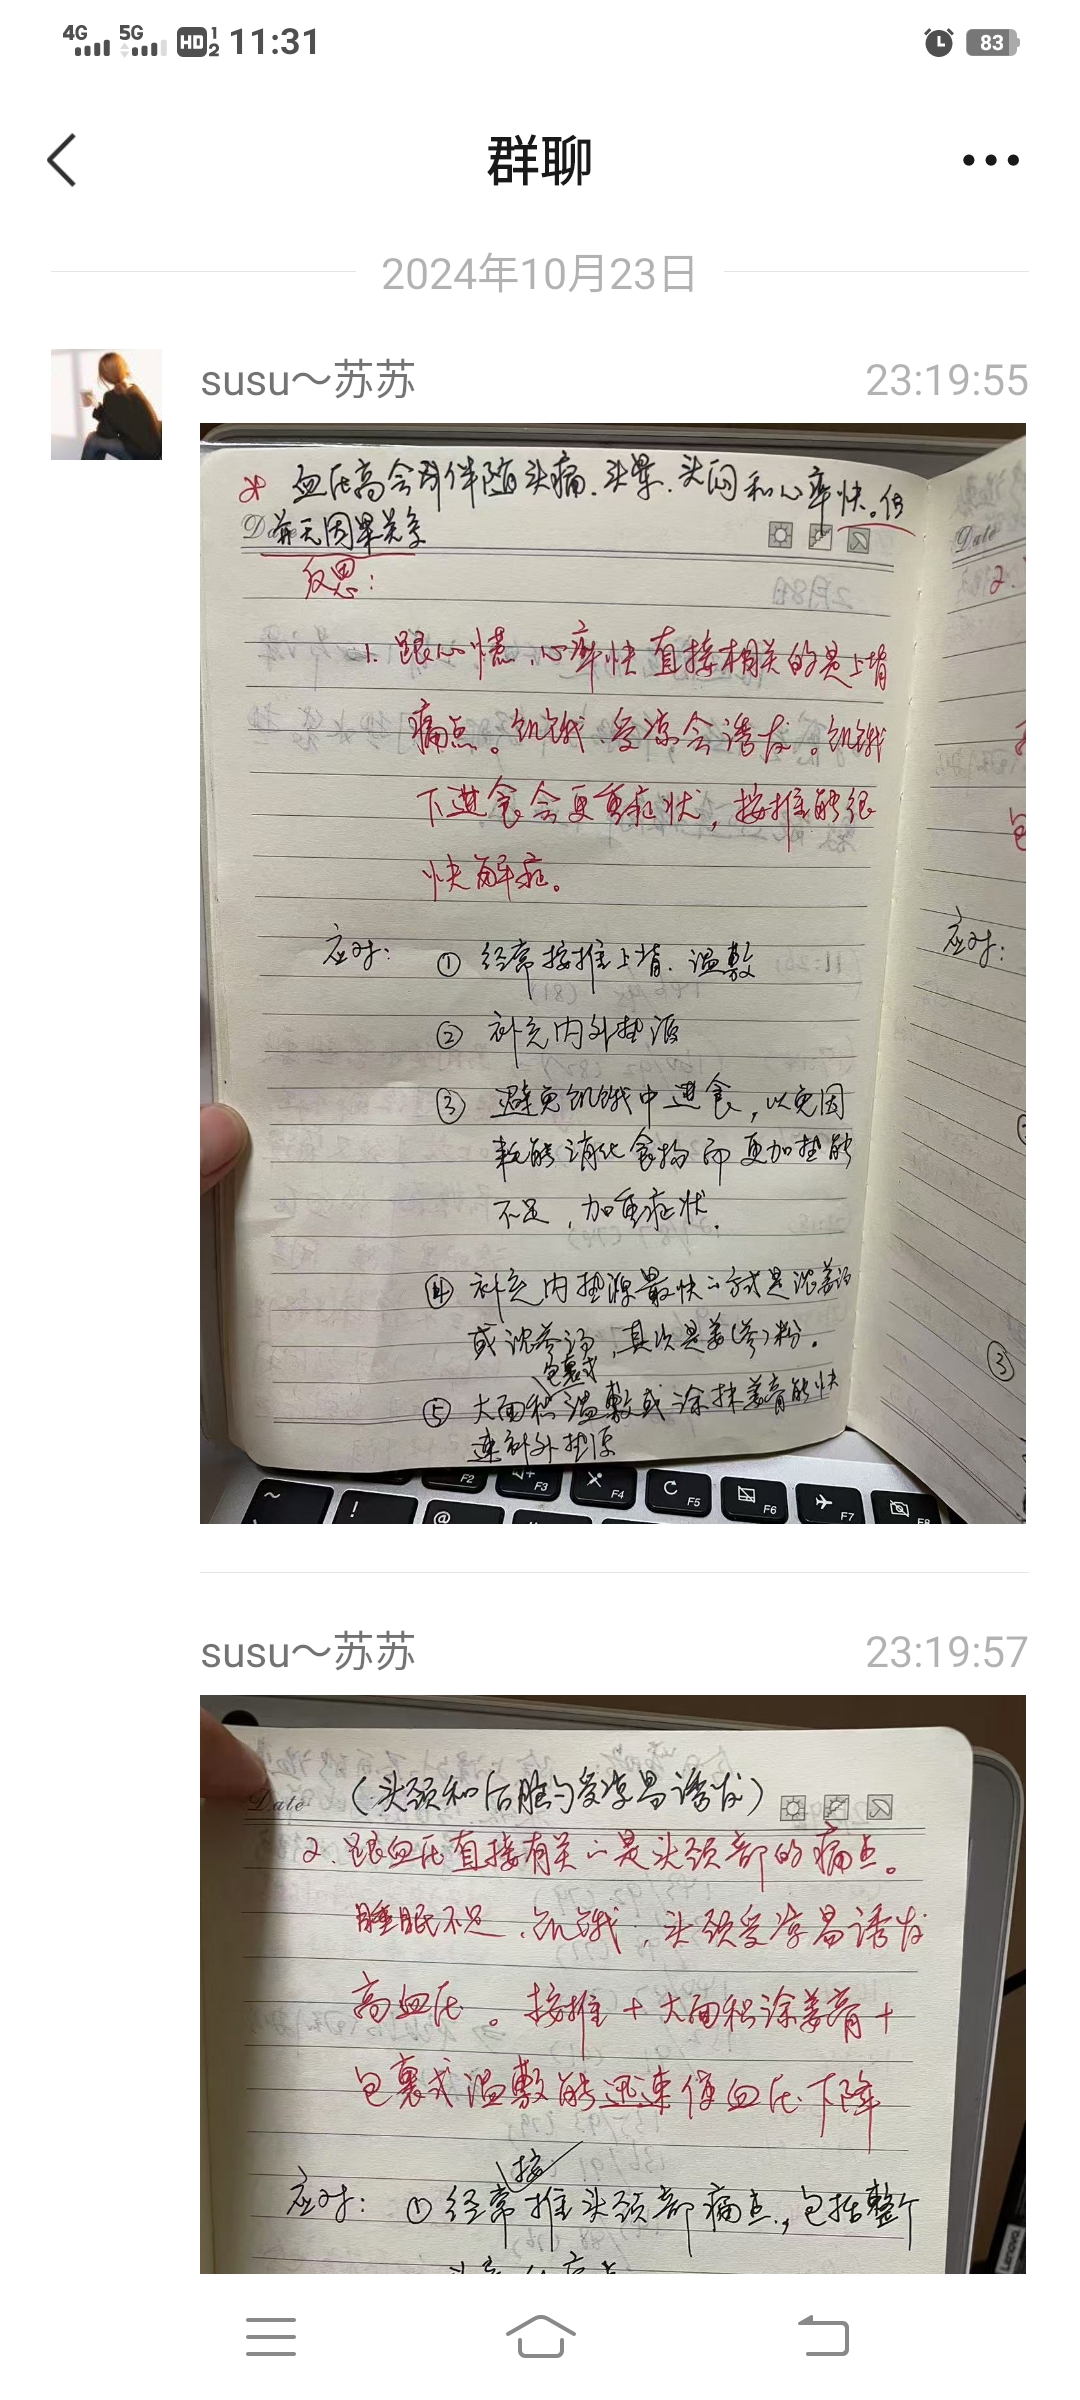 4G 5G HD 1 2 11:31 83
群聊
2024年10月23日
susu～苏苏 23:19:55
* 血压高会伴随头痛、头晕、头闷和心率快。但
Date 并无因果关系
反思：
1. 跟心慌、心率快直接相关的是上背
痛点。饥饿、受凉会诱发。饥饿
下进食会更重症状，按推能很
快解症。
应对： ① 经常按推上背、温敷
② 补充内外热源
③ 避免饥饿中进食，以免因
耗能消化食物而更加热能
不足，加重症状。
④ 补充内热源最快的方式是浓姜汤
或浓参汤，其次是姜(参)粉。
包裹式
⑤ 大面积温敷或涂抹姜膏能快
速补外热源
Date
2.
应对：
③
~ ! @ F2 F3 F4 C F5 F6 F7 F8
susu～苏苏 23:19:57
Date (头颈和后脑勺受凉易诱发)
2. 跟血压直接有关的是头颈部的痛点。
睡眠不足、饥饿、头颈受凉易诱发
高血压。按推+大面积涂姜膏+
包裹式温敷能迅速使血压下降
按
应对： ① 经常推头颈部痛点，包括整个